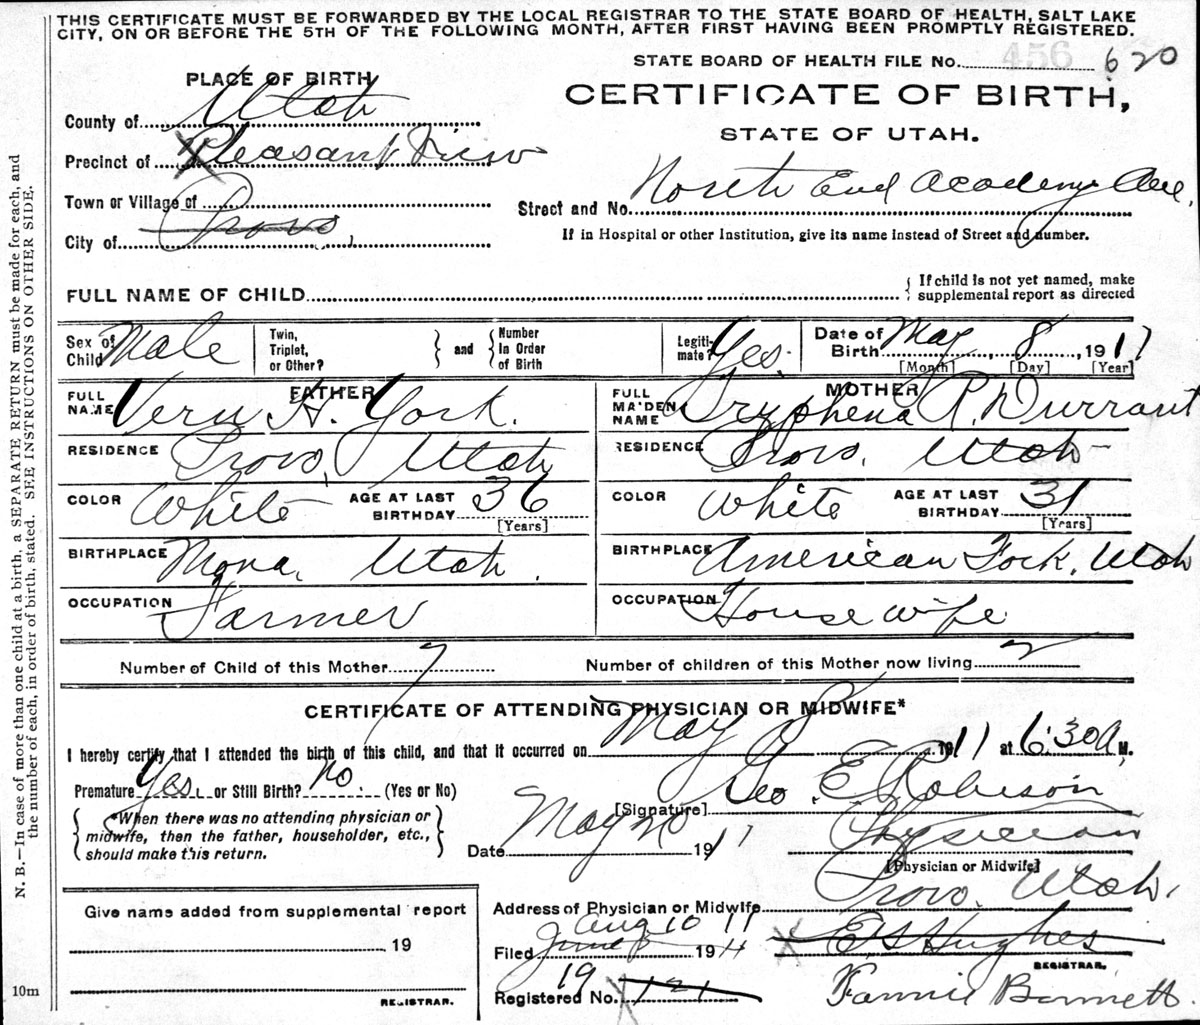 THIS CERTIFICATE MUST BE FORWARDED BY THE LOCAL REGISTRAR TO THE STATE BOARD OF HEALTH, SALT LAKE
CITY, ON OR BEFORE THE 5TH OF THE FOLLOWING MONTH, AFTER FIRST HAVING BEEN PROMPTLY REGISTERED.
456
STATE BOARD OF HEALTH FILE No. 620
PLACE OF BIRTH
CERTIFICATE OF BIRTH,
STATE OF UTAH.
County of Utah
Precinct of Pleasant View
Town or Village of
City of Provo
Street and No. North End Academy Ave.
If in Hospital or other Institution, give its name instead of Street and number.
FULL NAME OF CHILD
If child is not yet named, make
supplemental report as directed
Sex of Child Male
Twin, Triplet, or Other? and Number In Order of Birth
Legiti-mate? Yes.
Date of Birth May 8, 1911
[Month] [Day] [Year]
FATHER
FULL NAME Vern H. York.
RESIDENCE Provo, Utah
COLOR White AGE AT LAST BIRTHDAY 36 [Years]
BIRTHPLACE Mona, Utah.
OCCUPATION Farmer
MOTHER
FULL MAIDEN NAME Tryphena P. Durrant
RESIDENCE Provo, Utah
COLOR White AGE AT LAST BIRTHDAY 31 [Years]
BIRTHPLACE American Fork, Utah
OCCUPATION House wife
Number of Child of this Mother 7
Number of children of this Mother now living
CERTIFICATE OF ATTENDING PHYSICIAN OR MIDWIFE*
I hereby certify that I attended the birth of this child, and that it occurred on May 8 1911 at 6:30 A. M.
Premature Yes. or Still Birth? no. (Yes or No)
*When there was no attending physician or
midwife, then the father, householder, etc.,
should make this return.
[Signature] Geo. E. Robison
Date May 20 1911
Physician
[Physician or Midwife]
Address of Physician or Midwife Provo, Utah.
Give name added from supplemental report
19
REGISTRAR.
Aug 10 11
Filed June 1911
E S Hughes
REGISTRAR.
19
Registered No. 121
Fannie Bonnett.
10m
N. B.—In case of more than one child at a birth, a SEPARATE RETURN must be made for each, and
the number of each, in order of birth, stated. SEE INSTRUCTIONS ON OTHER SIDE.